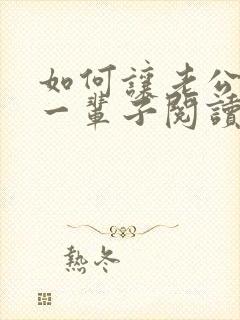 如何讓老公
一輩子閱讀
熱冬